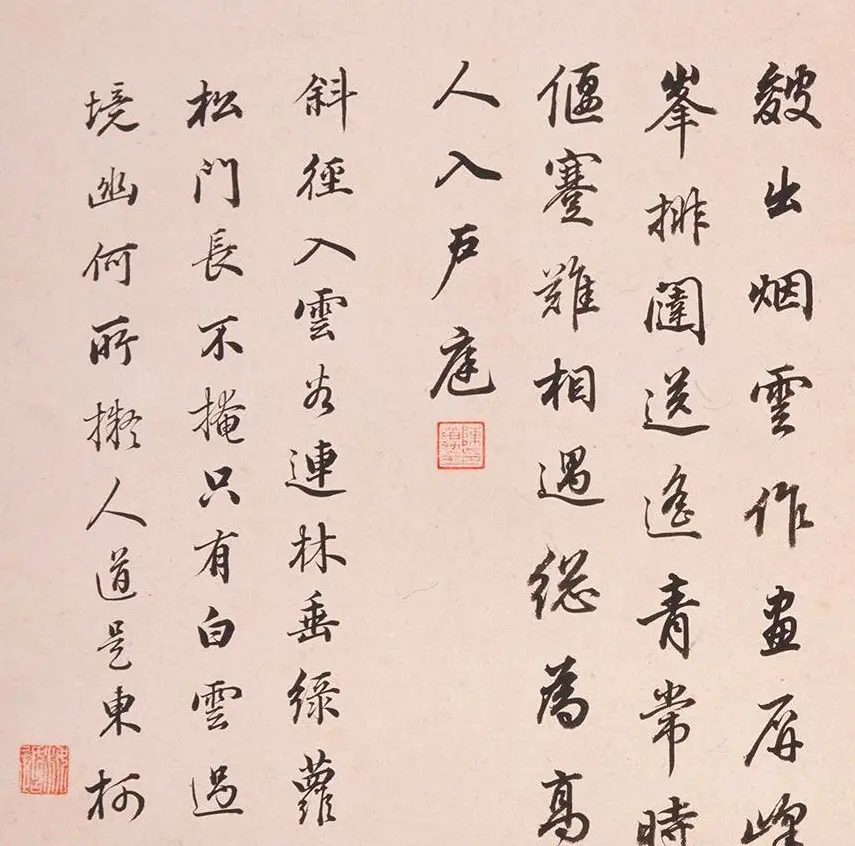 皴出烟雲作畫屏峰
峯排闥送遙青常時
偃蹇難相遇總為高
人入戶庭
斜徑入雲谷連林垂綠蘿
松門長不掩只有白雲過
境幽何所擬人道是東柯